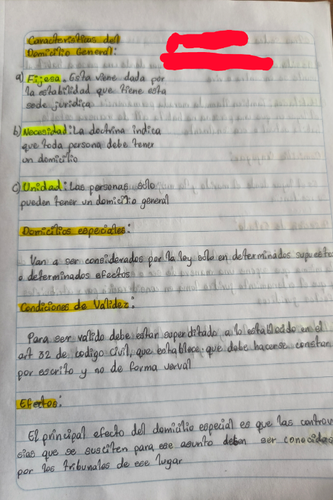 Características del
Domicilio General:
a) Fijesa. Esta viene dada por
la estabilidad que tiene esta
sede jurídica
b) Necesidad: La doctrina indica
que toda persona debe tener
un domicilio
c) Unidad: Las personas sólo
pueden tener un domicilio general
Domicilios especiales:
Van a ser considerados por la ley sólo en determinados supuesto
o determinados efectos
Condiciones de Validez:
Para ser válido debe estar supeditado a lo establecido en el
art 32 de código Civil, que establece: que debe hacerse constar
por escrito y no de forma verval
Efectos:
El principal efecto del domicilio especial es que las controv
sias que se susciten para ese asunto deben ser conocidas
por los tribunales de ese lugar